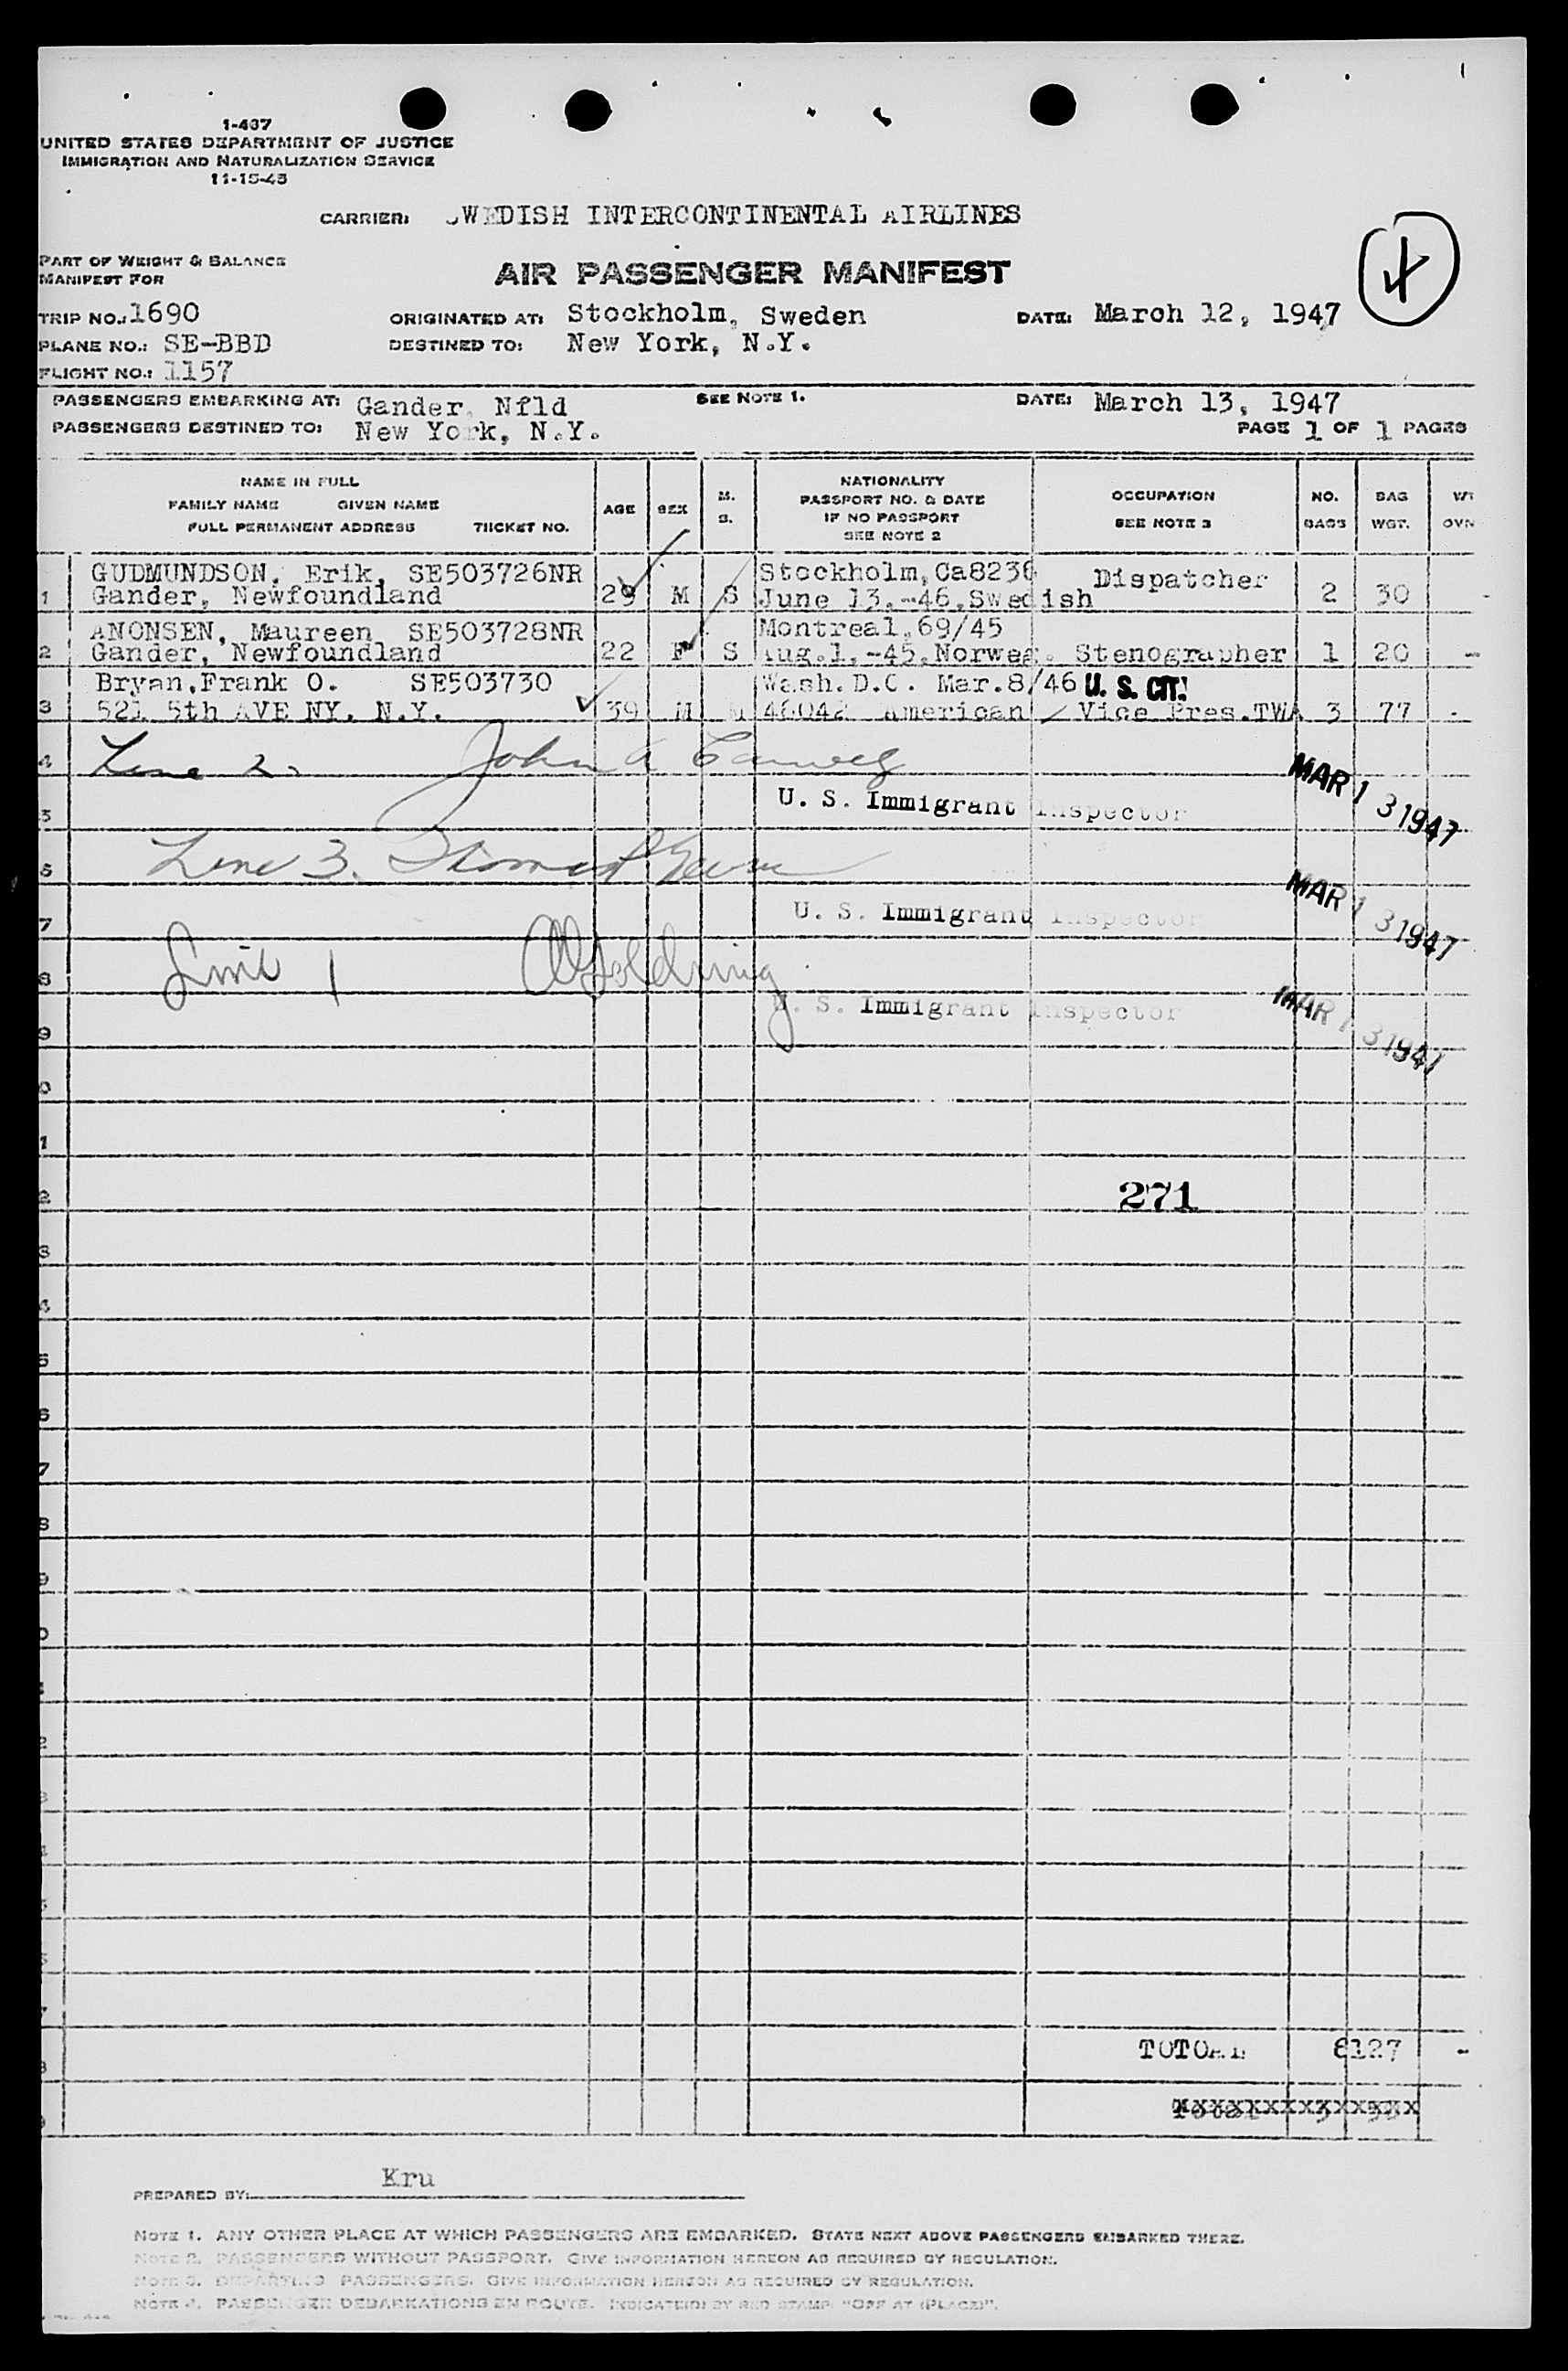 1-437
UNITED STATES DEPARTMENT OF JUSTICE
IMMIGRATION AND NATURALIZATION SERVICE
11-15-45
CARRIER: SWEDISH INTERCONTINENTAL AIRLINES
PART OF WEIGHT & BALANCE
MANIFEST FOR
AIR PASSENGER MANIFEST
TRIP NO.: 1690 ORIGINATED AT: Stockholm, Sweden DATE: March 12, 1947
PLANE NO.: SE-BBD DESTINED TO: New York, N.Y.
FLIGHT NO.: 1157
PASSENGERS EMBARKING AT: Gander, Nfld SEE NOTE 1. DATE: March 13, 1947
PASSENGERS DESTINED TO: New York, N.Y. PAGE 1 OF 1 PAGES
NAME IN FULL
FAMILY NAME GIVEN NAME
FULL PERMANENT ADDRESS TIICKET NO.
AGE
SEX
M.
S.
NATIONALITY
PASSPORT NO. & DATE
IF NO PASSPORT
SEE NOTE 2
OCCUPATION
SEE NOTE 3
NO.
BAGS
BAG
WGT.
WT
OVN
GUDMUNDSON, Erik, SE503726NR Stockholm,Ca8236 Dispatcher
1 Gander, Newfoundland 29 M S June 13,-46,Swedish 2 30 -
ANONSEN, Maureen SE503728NR Montreal,69/45
2 Gander, Newfoundland 22 F S Aug.1,-45,Norweg. Stenographer 1 20 -
Bryan,Frank O. SE503730 Wash.D.C. Mar.8/46 U. S. CIT.
3 521 5th AVE NY. N.Y. 39 M M 46042 American Vice Pres.TWA 3 77 -
4 Line 2. John A
U. S. Immigrant Inspector MAR 13 1947
5
6 Line 3. Thomas
U. S. Immigrant Inspector MAR 13 1947
7
8 Line 1 Golding
U. S. Immigrant Inspector MAR 13 1947
9
271
TOTOAL 6127 -
PREPARED BY: Kru
NOTE 1. ANY OTHER PLACE AT WHICH PASSENGERS ARE EMBARKED. STATE NEXT ABOVE PASSENGERS EMBARKED THERE.
NOTE 2. PASSENGERS WITHOUT PASSPORT. GIVE INFORMATION HEREON AS REQUIRED BY REGULATION.
NOTE 3. DEPARTING PASSENGERS. GIVE INFORMATION HEREON AS REQUIRED BY REGULATION.
NOTE 4. PASSENGER DEBARKATIONS EN ROUTE. INDICATE(D) BY RED STAMP "OFF AT (PLACE)".